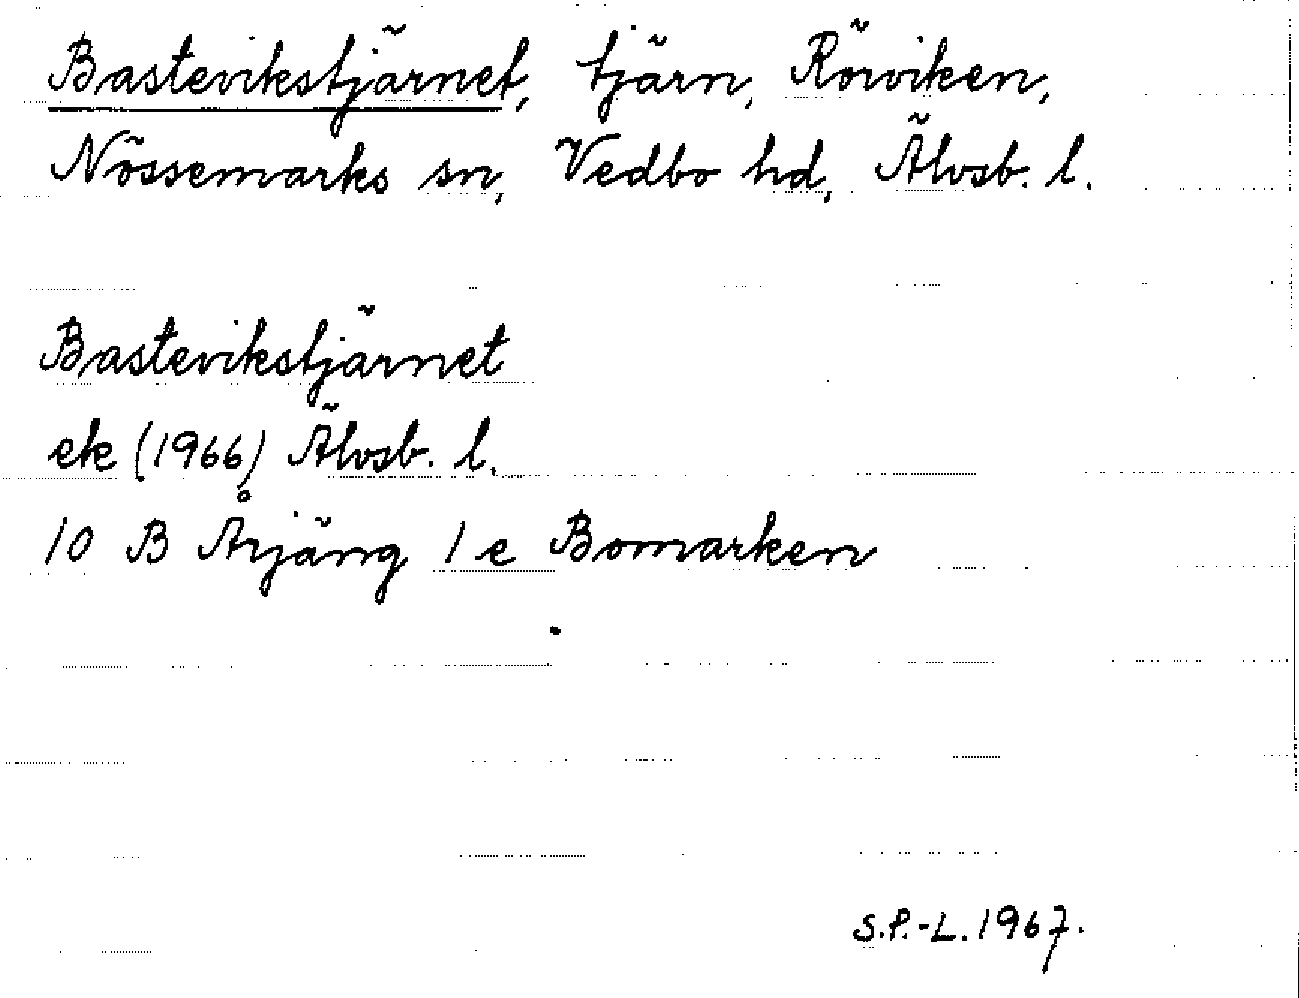 Bastevikstjärnet, tjärn, Rörviken,
Nössemarks sn, Vedbo hd, Älvsb. l.
Bastevikstjärnet
ek (1966) Älvsb. l.
10 B Årjäng 1 e Bomarken
S.P.-L. 1967.